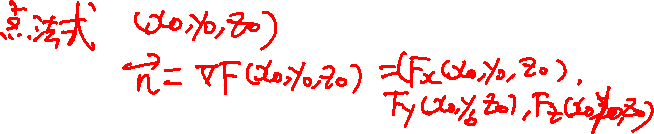 点法式 (x₀,y₀,z₀)
n⃗ = ∇F(x₀,y₀,z₀) = (Fx(x₀,y₀,z₀),
Fy(x₀,y₀,z₀), Fz(x₀,y₀,z₀)